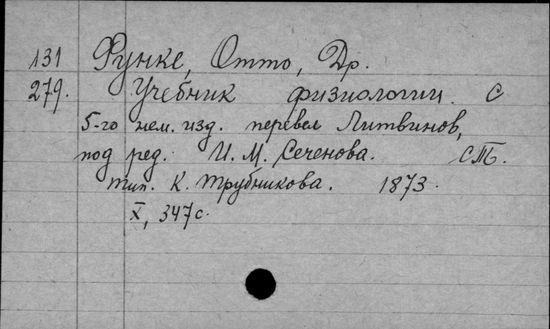 131 Функе, Отто, Др.
279. Учебник физиологии. С
5-го нем. изд. перевел Литвинов,
под ред. И. М. Сеченова. СПБ.
тип. К. Трубникова. 1873.
X, 347 с.